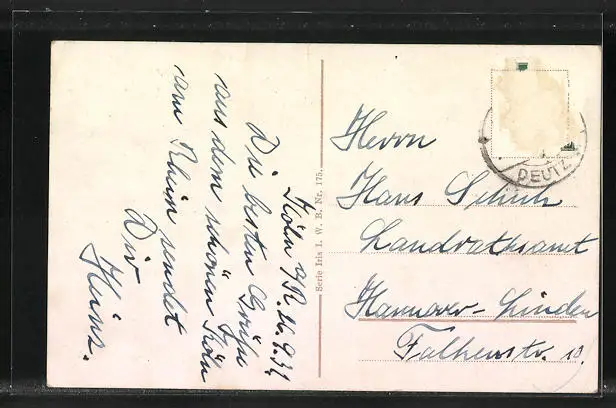 Köln a/R. 26.9.32
Die besten Grüße
aus dem schönen Köln
am Rhein sendet
Dir
Heinz.
Serie Iris I. W. B. Nr. 175.
DEUTZ
Herrn
Hans Schütz
Landratsamt
Hannover-Linden
Falkenstr. 10.